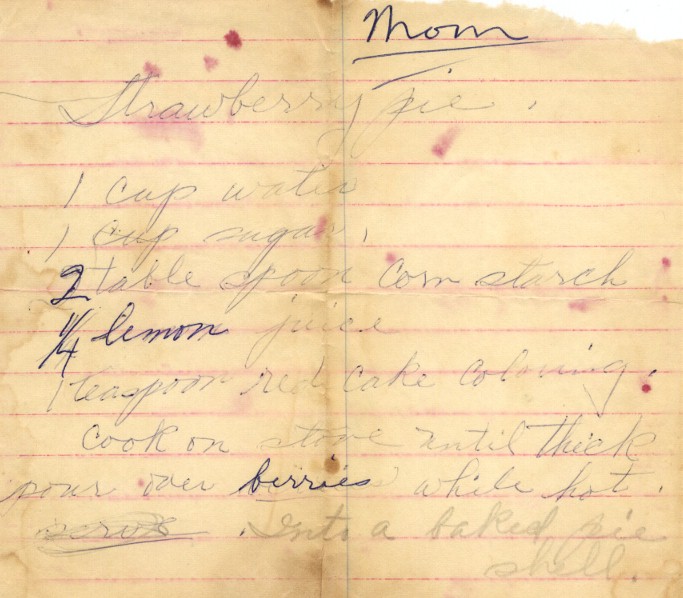 Mom
Strawberry pie.
1 cup water
1 cup sugar,
2 table spoon corn starch
1/4 lemon juice
1 teaspoon red cake coloring.
cook on stove until thick
pour over berries while hot.
serve . Into a baked pie
shell.